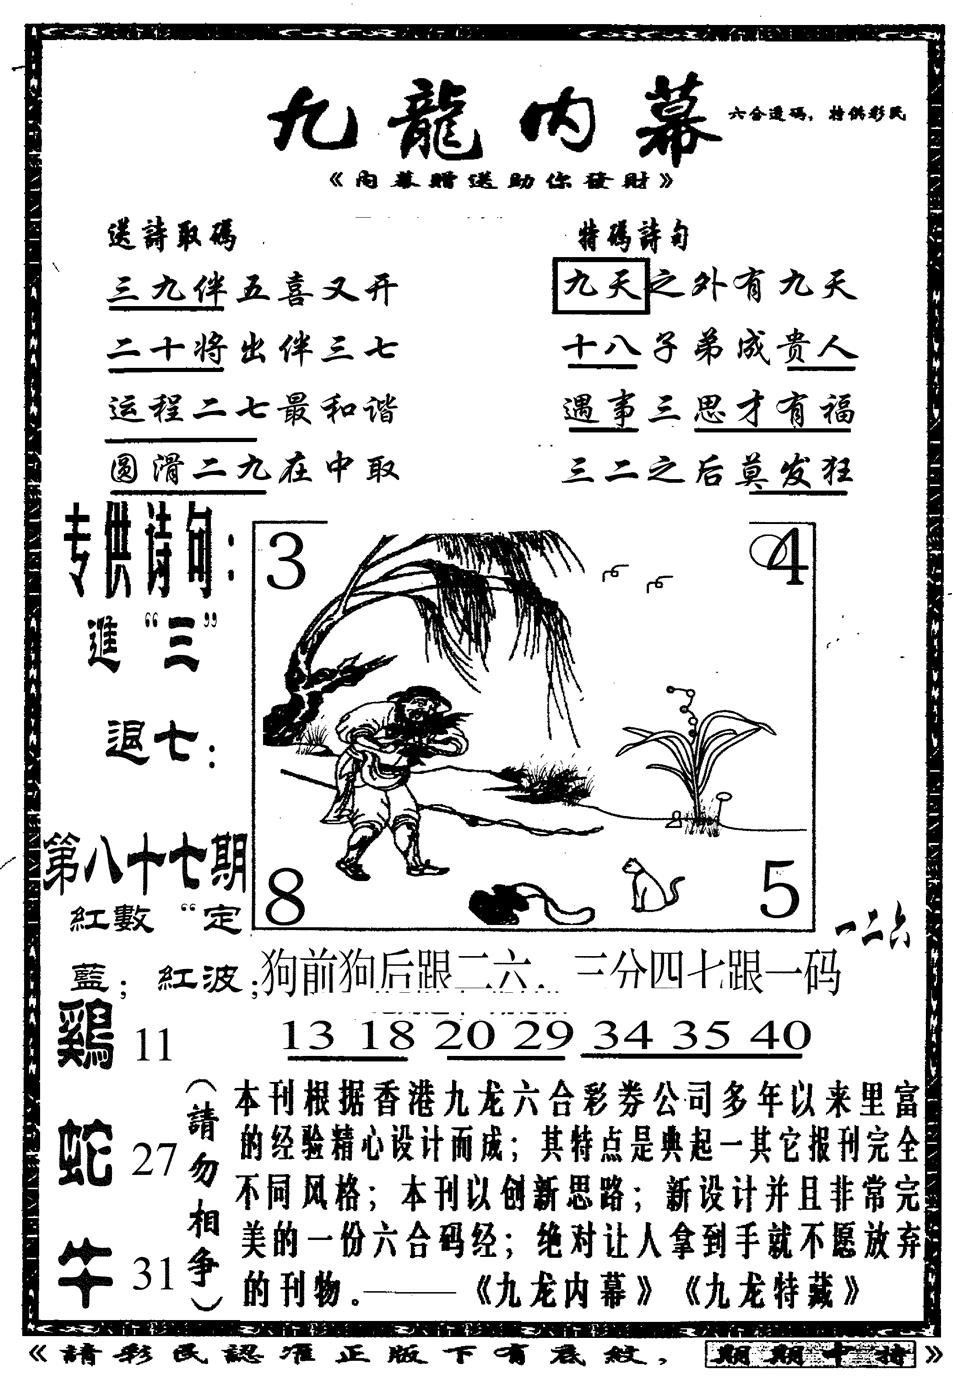 九龍内幕
六合透码，特供彩民
《内幕赠送助你發財》
送詩取碼
三九伴五喜又开
二十将出伴三七
运程二七最和谐
圆滑二九在中取
特碼詩句
九天之外有九天
十八子弟成贵人
遇事三思才有福
三二之后莫发狂
专供诗句：
進“三”
退七：
第八十七期
紅數“定
藍；紅波；
鷄 11
蛇 27
牛 31
3 4
8 5
一二六
狗前狗后跟二六．三分四七跟一码
13 18 20 29 34 35 40
（請勿相争）
本刊根据香港九龙六合彩券公司多年以来里富
的经验精心设计而成；其特点是典起一其它报刊完全
不同风格；本刊以创新思路；新设计并且非常完
美的一份六合码经；绝对让人拿到手就不愿放弃
的刊物。——《九龙内幕》《九龙特藏》
《請彩民認准正版下有底紋，期期中特》